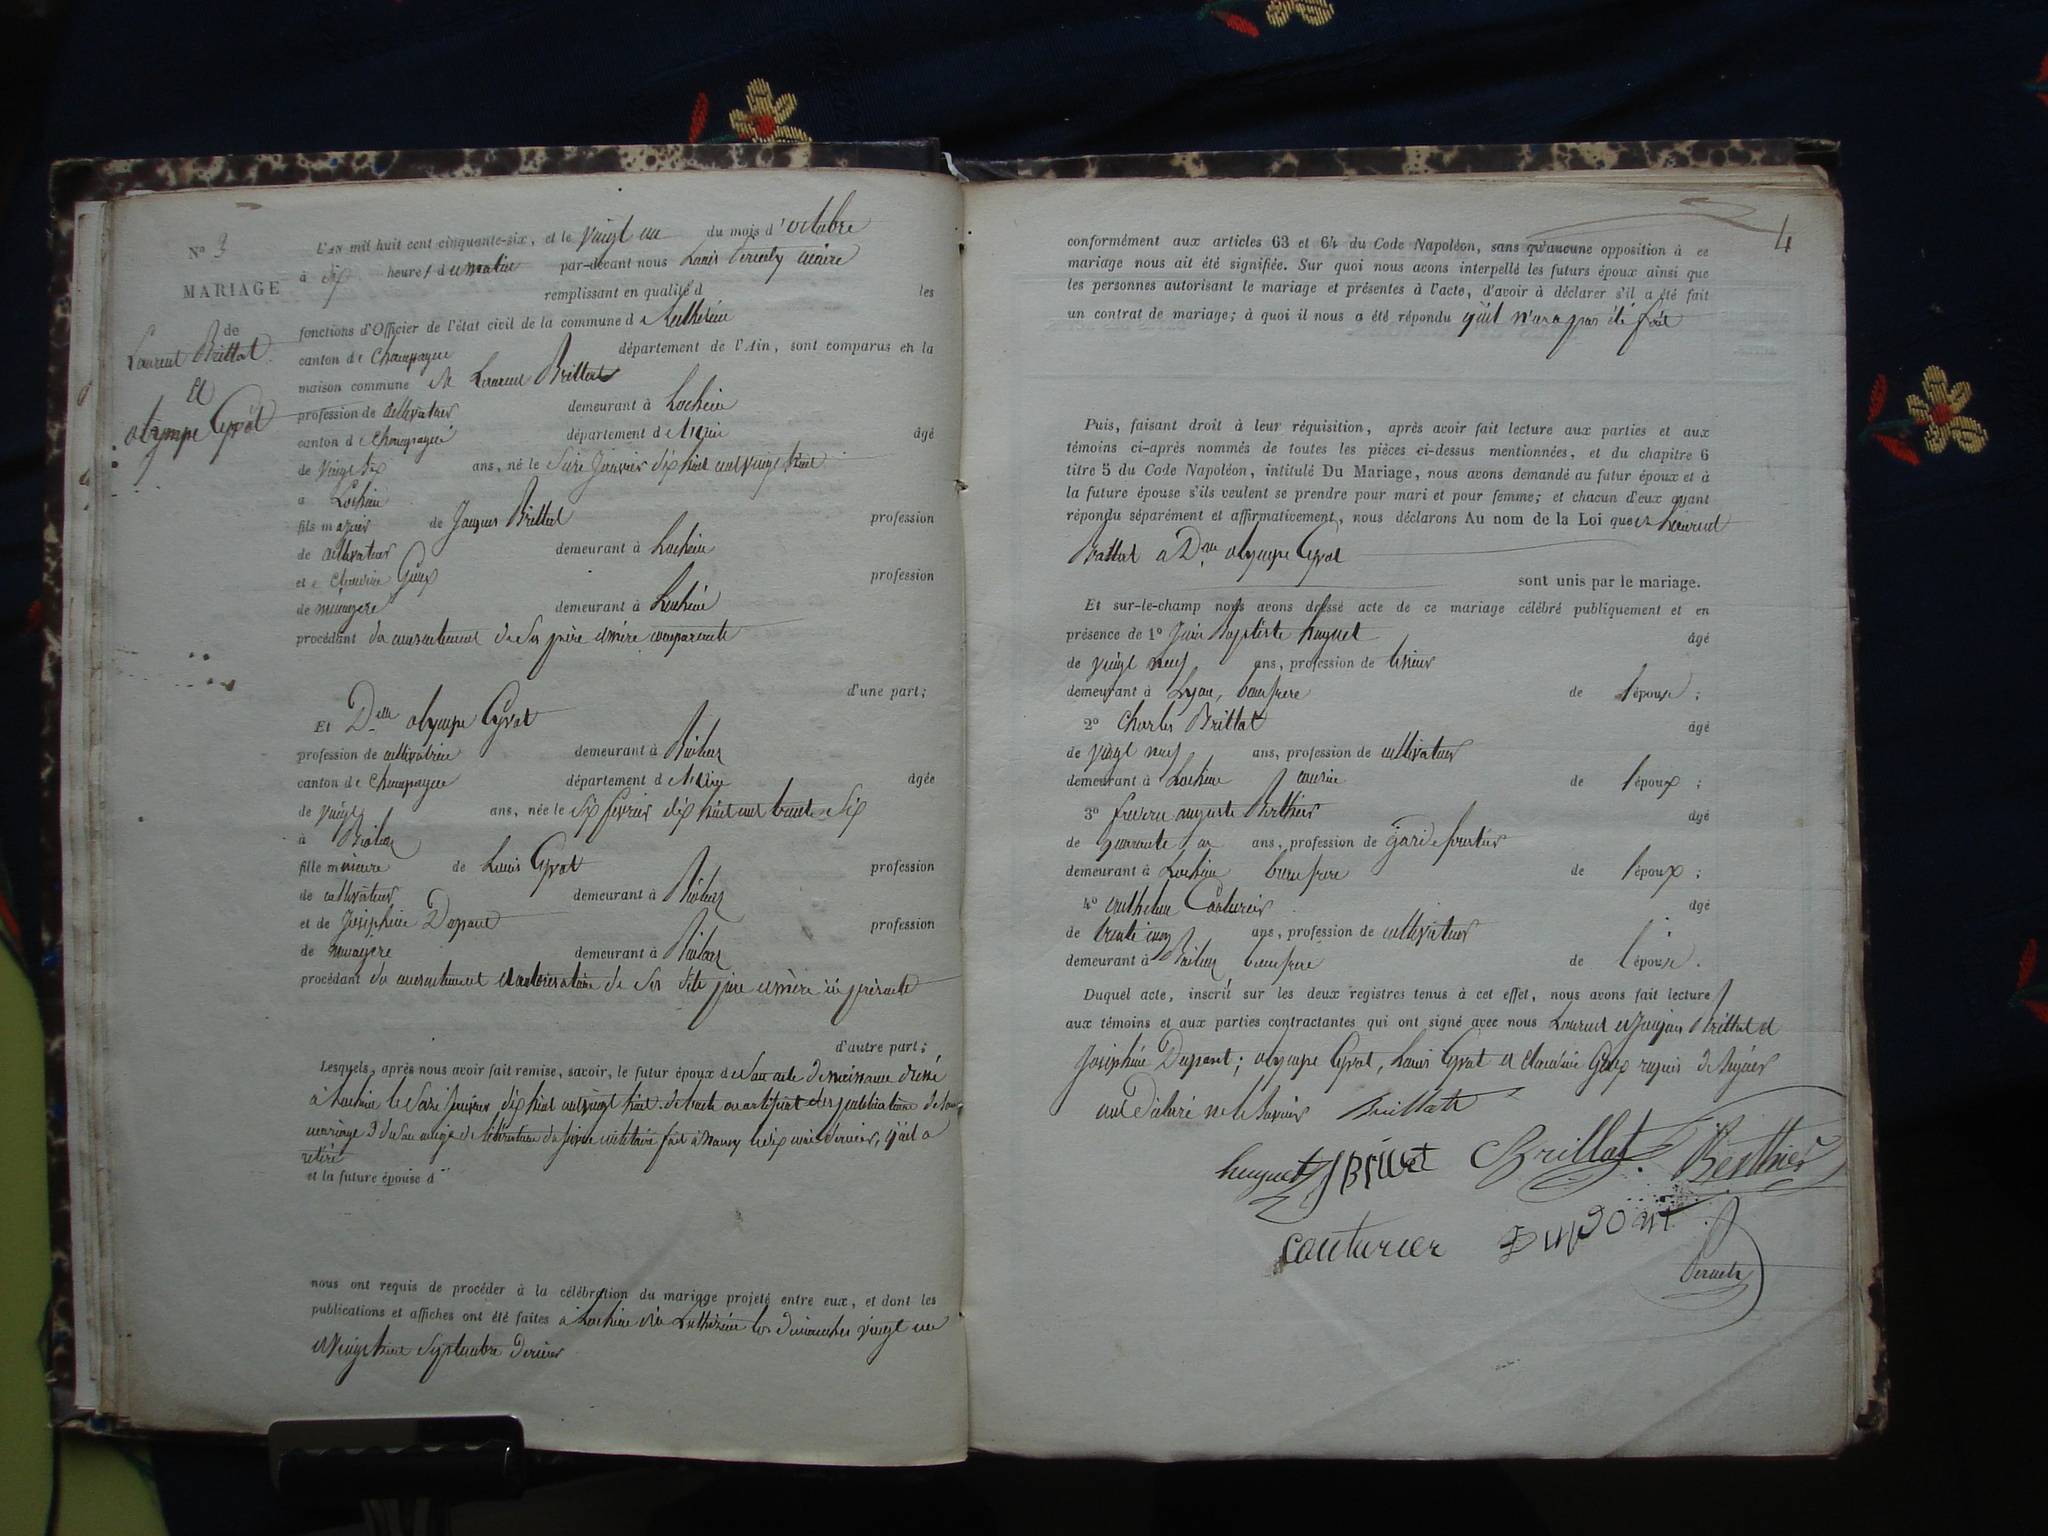 N° 3
MARIAGE
de
Laurent Brillat
et
olympe Cyvot
L'an mil huit cent cinquante-six, et le vingt un du mois d'octobre
à dix heures du matin par-devant nous Louis maire
remplissant en qualité d les
fonctions d'Officier de l'état civil de la commune de
canton de Champagne département de l'Ain, sont comparus en la
maison commune Laurent Brillat
profession de cultivateur demeurant à Lochieu
canton de Champagne département de l'Ain âgé
de vingt huit ans, né le seize Janvier dix huit cent vingt huit
à Lochieu
fils majeur de Jacques Brillat profession
de cultivateur demeurant à Lochieu
et de Claudine profession
de ménagère demeurant à Lochieu
procédant du consentement de ses père et mère
d'une part;
Et Dlle olympe Cyvot
profession de cultivatrice demeurant à
canton de Champagne département de l'Ain âgée
de vingt ans, née le six fevrier dix huit cent trente six
à
fille mineure de Louis Cyvot profession
de cultivateur demeurant à
et de Joséphine Dupont profession
de menagère demeurant à
procédant du consentement et autorisation de ses dits père et mère ici présents
d'autre part;
Lesquels, après nous avoir fait remise, savoir, le futur époux de son acte de naissance dressé
à Lochieu le seize Janvier dix huit cent vingt huit des publications de son
mariage du service militaire fait à dernier, qu'il a
retiré
et la future épouse d
nous ont requis de procéder à la célébration du mariage projeté entre eux, et dont les
publications et affiches ont été faites à Lochieu les dimanches vingt un
et vingt huit Septembre dernier
4
conformément aux articles 63 et 64 du Code Napoléon, sans qu'aucune opposition à ce
mariage nous ait été signifiée. Sur quoi nous avons interpellé les futurs époux ainsi que
les personnes autorisant le mariage et présentes à l'acte, d'avoir à déclarer s'il a été fait
un contrat de mariage; à quoi il nous a été répondu qu'il n'en a pas été fait
Puis, faisant droit à leur réquisition, après avoir fait lecture aux parties et aux
témoins ci-après nommés de toutes les pièces ci-dessus mentionnées, et du chapitre 6
titre 5 du Code Napoléon, intitulé Du Mariage, nous avons demandé au futur époux et à
la future épouse s'ils veulent se prendre pour mari et pour femme; et chacun d'eux ayant
répondu séparément et affirmativement, nous déclarons Au nom de la Loi que Laurent
Brillat et Dlle olympe Cyvot
sont unis par le mariage.
Et sur-le-champ nous avons dressé acte de ce mariage célébré publiquement et en
présence de 1° Jean Baptiste huguet âgé
de vingt neuf ans, profession de
demeurant à Lyon, beau frere de l'épouse;
2° Charles Brillat âgé
de vingt neuf ans, profession de cultivateur
demeurant à Lochieu cousin de l'époux;
3° auguste Berthier âgé
de quarante ans, profession de garde forestier
demeurant à Lochieu beau frere de l'époux;
4° anthelme Couturier âgé
de trente cinq ans, profession de cultivateur
demeurant à beau frere de l'épouse.
Duquel acte, inscrit sur les deux registres tenus à cet effet, nous avons fait lecture
aux témoins et aux parties contractantes qui ont signé avec nous Laurent et Jacques Brillat et
Joséphine Dupont; olympe Cyvot, Louis Cyvot et Claudine requis de signer
ont déclaré ne le savoir Brillat
huguet Brillat Berthier
Couturier Dupont